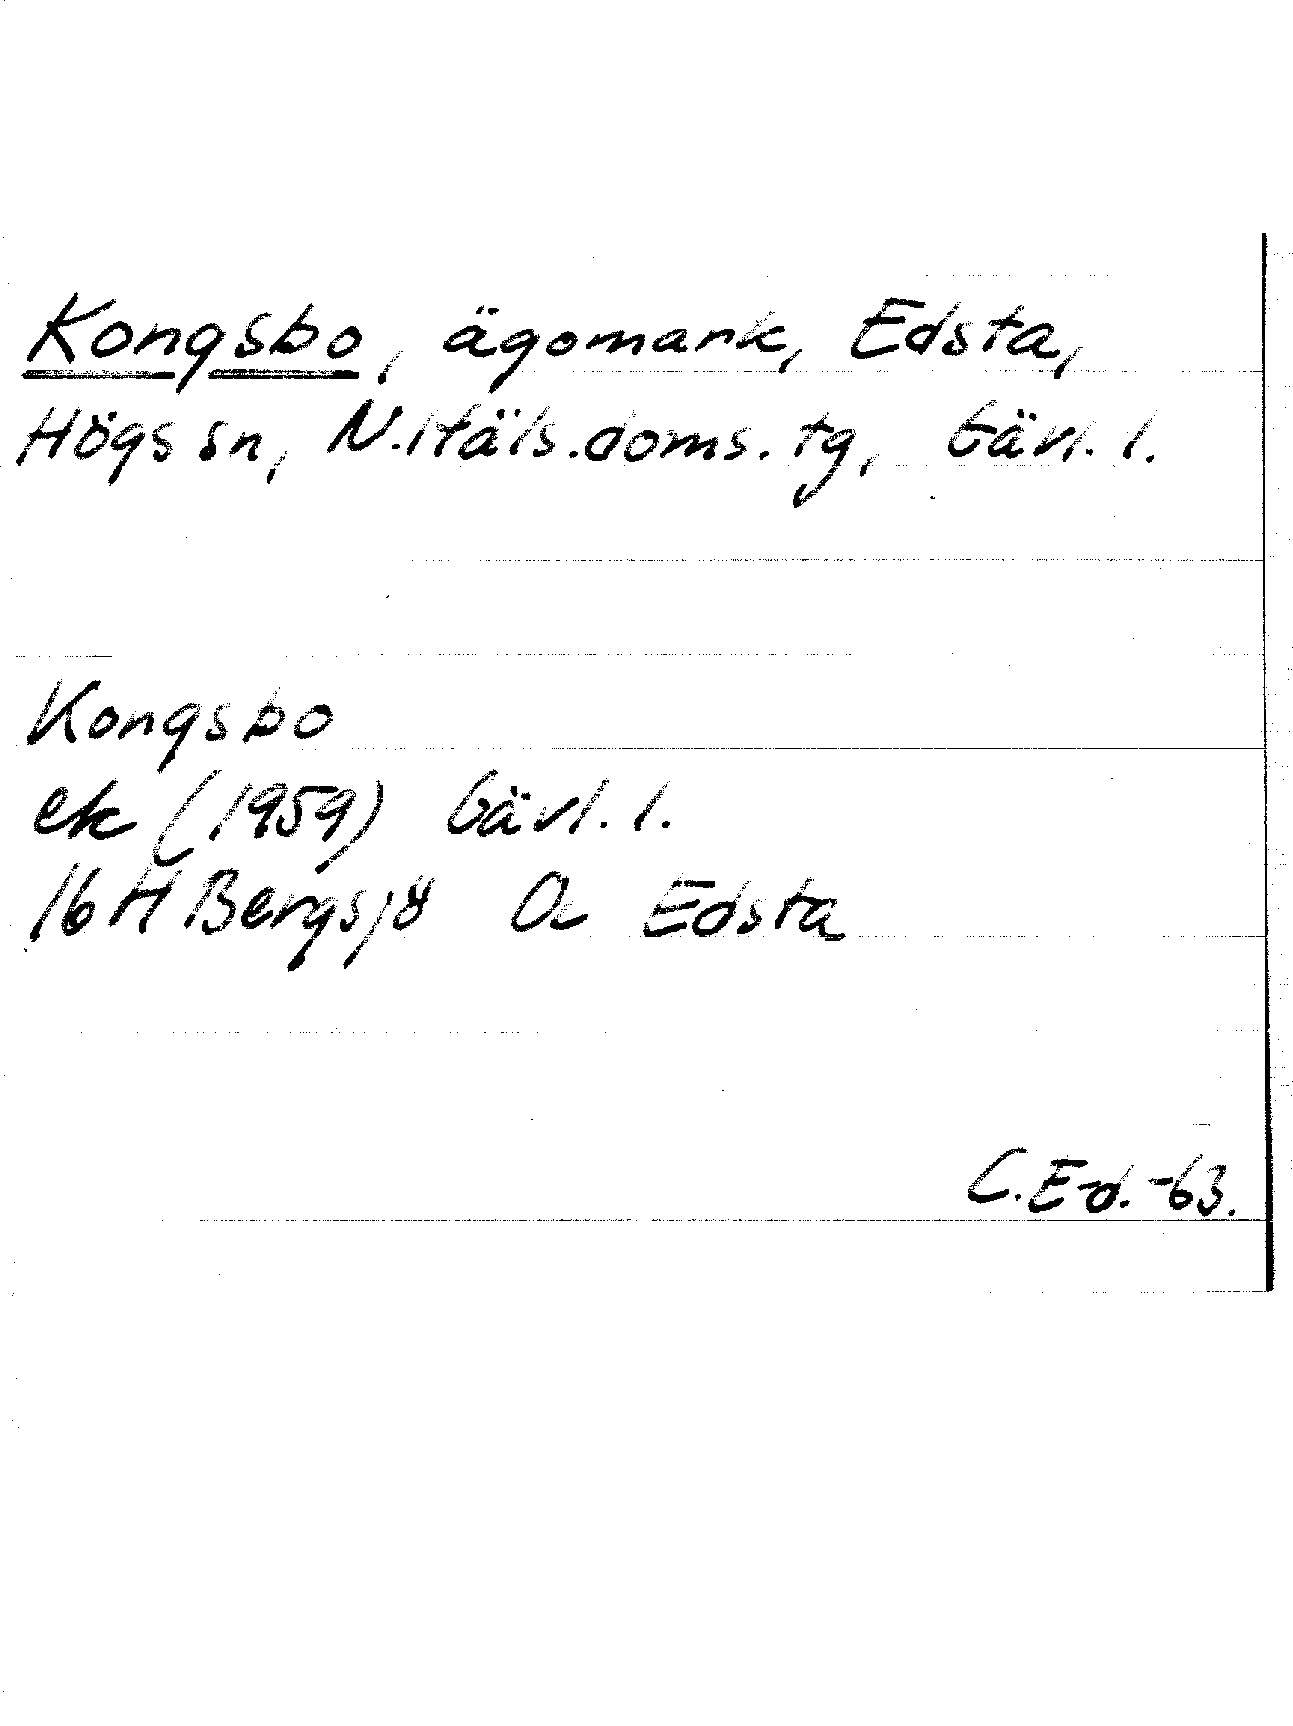 Kongsbo, ägomark, Edsta,
Högs sn, N.Häls.doms.tg, Gävl. l.
Kongsbo
ek (1959) Gävl. l.
16 H Bergsjö Oc Edsta
C.E-d.-63.